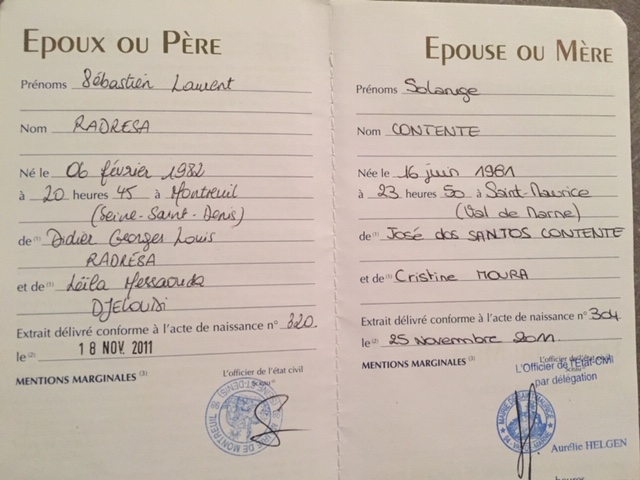 EPOUX OU PÈRE
Prénoms Sébastien Laurent
Nom RADRESA
Né le 06 février 1982
à 20 heures 45 à Montreuil
(Seine-Saint-Denis)
de (1) Didier Georges Louis
RADRESA
et de (1) Leïla Messaouda
DJELOUDI
Extrait délivré conforme à l'acte de naissance n° 320.
le (2) 18 NOV. 2011
MENTIONS MARGINALES (3)
L'officier de l'état civil
Sceau
EPOUSE OU MÈRE
Prénoms Solange
Nom CONTENTE
Née le 16 juin 1981
à 23 heures 50 à Saint-Maurice
(Val de Marne)
de (1) José dos SANTOS CONTENTE
et de (1) Cristine MOURA
Extrait délivré conforme à l'acte de naissance n° 304
le (2) 25 Novembre 2011.
MENTIONS MARGINALES (3)
L'officier de l'état civil
L'Officier de l'Etat-Civil
par délégation
Aurélie HELGEN